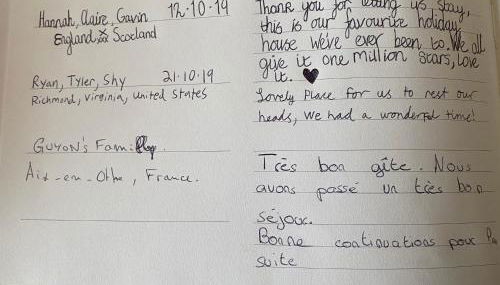 Hannah, Claire, Gavin 12.10.19
England xx Scotland
Thank you for letting us stay,
this is our favourite holiday
house we've ever been to. We all
give it one million stars, love
it. ♥
Ryan, Tyler, Shy 21.10.19
Richmond, Virginia, United States
Lovely Place for us to rest our
heads, we had a wonderful time!
GUYON'S Family.
Aix-en-Othe, France.
Très bon gîte. Nous
avons passé un très bon
séjour.
Bonne continuations pour la
suite